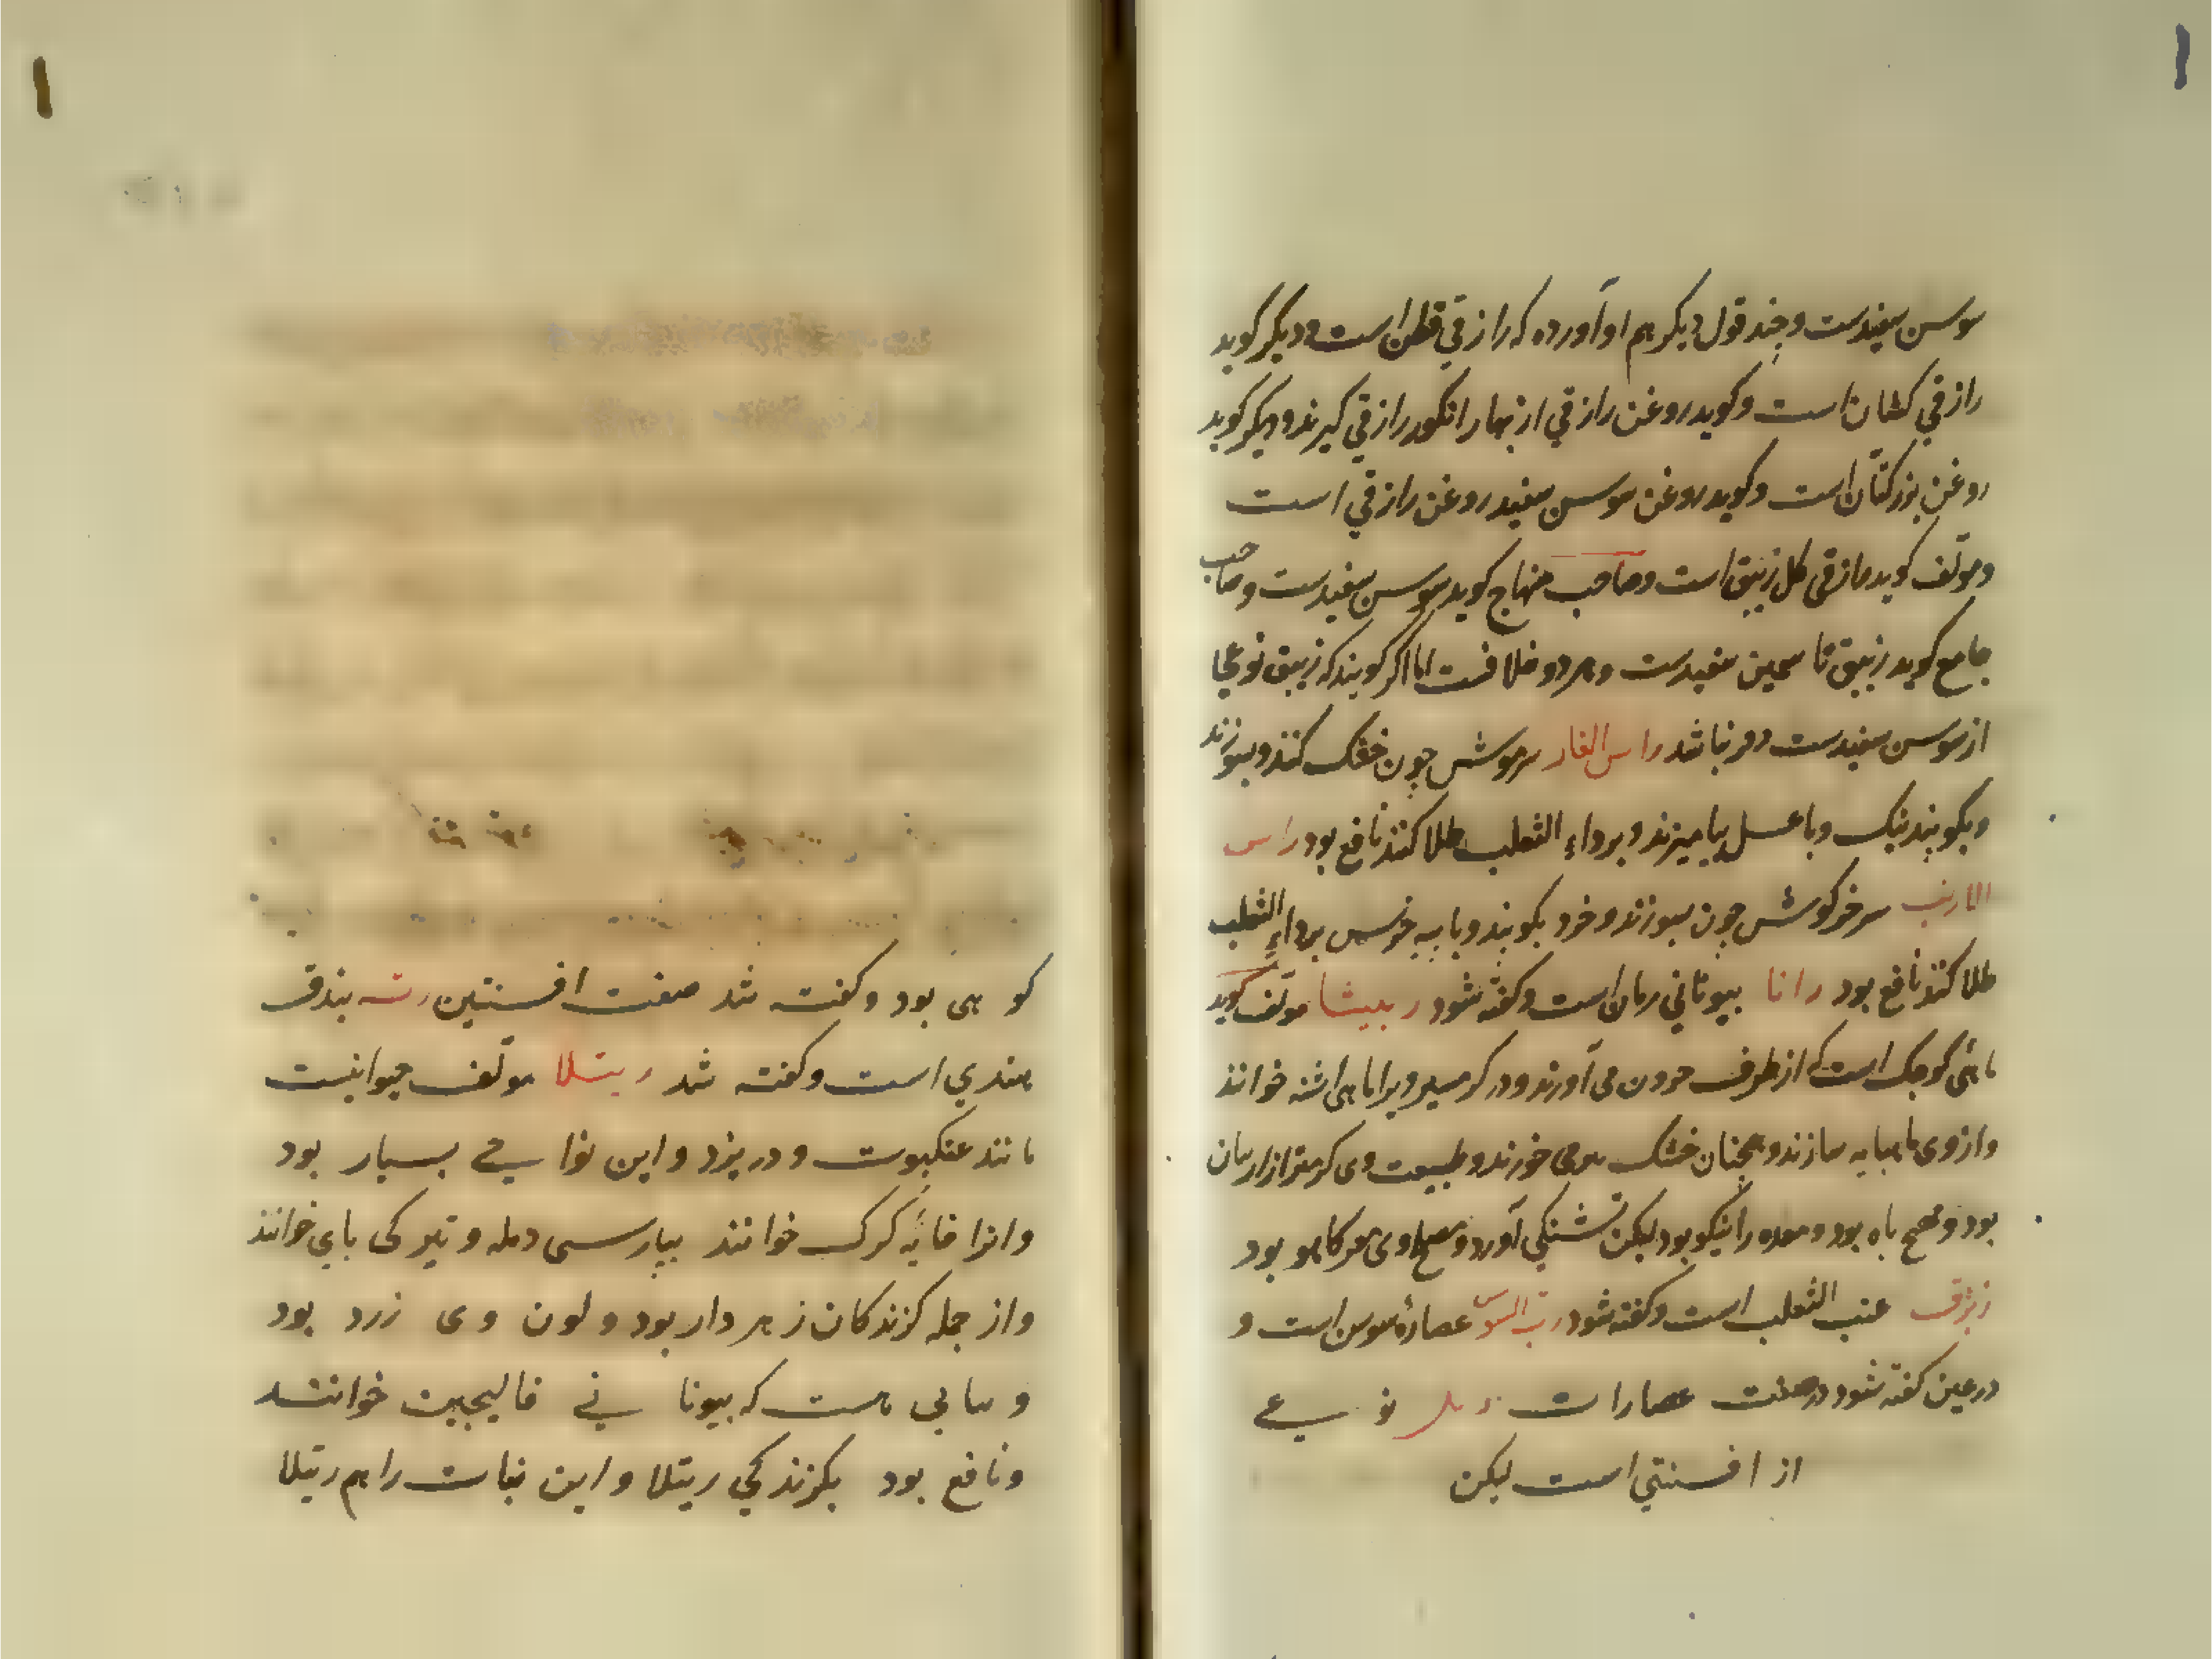 سوسن سفیدست و چند قول دیکر هم او آورده که رازقی قطن است و دیکر کوید
رازقی کتان است و کوید روغن رازقی از بهار انکور رازقی کیرند و دیکر کوید
روغن بزر کتّان است و کوید روغن سوسن سفید روغن رازقی است
و مولّف کوید رازقی کل زنبق است و صاحب منهاج کوید سوسن سفیدست و صاحب
جامع کوید زنبق یاسمین سفیدست و هر دو خلافست اما اکر کویند که زنبق نوعی
از سوسن سفیدست دور نباشد راس الفار سر موش چون خشک کنند و بسوزند
و بکوبند نیک و با عسل بیامیزند و بر داء الثعلب طلا کنند نافع بود راس
الارنب سر خرکوش چون بسوزند و خرد بکوبند و با پیه خرس بر داء الثعلب
طلا کنند نافع بود رانا بیونانی رمان است و کفته شود ربیثا مولّف کوید
ماهی کوچک است که از طرف می آورند و در کرمسیر ویرا ماهی اشنه خوانند
و از وی ماهیابه سازند و همچنان خشک می خورند و طبیعت وی کرمتر از اربیان
بود و مهیج باه بود و معده را نیکو بود لیکن تشنکی آورد و مصلح وی بود
عنب الثعلب است و کفته شود ربّ السوس عصارهٔ سوس است و
در عین کفته شود در صفت عصارات ربل نوعی
از افسنتین است لیکن
کوهی بود و کفته شد صفت افسنتین رته بندق
هندی است و کفته شد رتیلا مولّف حیوانیست
مانند عنکبوت و در یزد و این نواحی بسیار بود
و انرا خایه کرک خوانند بپارسی دمله و بترکی بای خوانند
و از جمله کزندکان زهردار بود و لون وی زرد بود
و نباتی هست که بیونانی فالیجین خوانند
و نافع بود بکزندکی رتیلا و این نبات را هم رتیلا